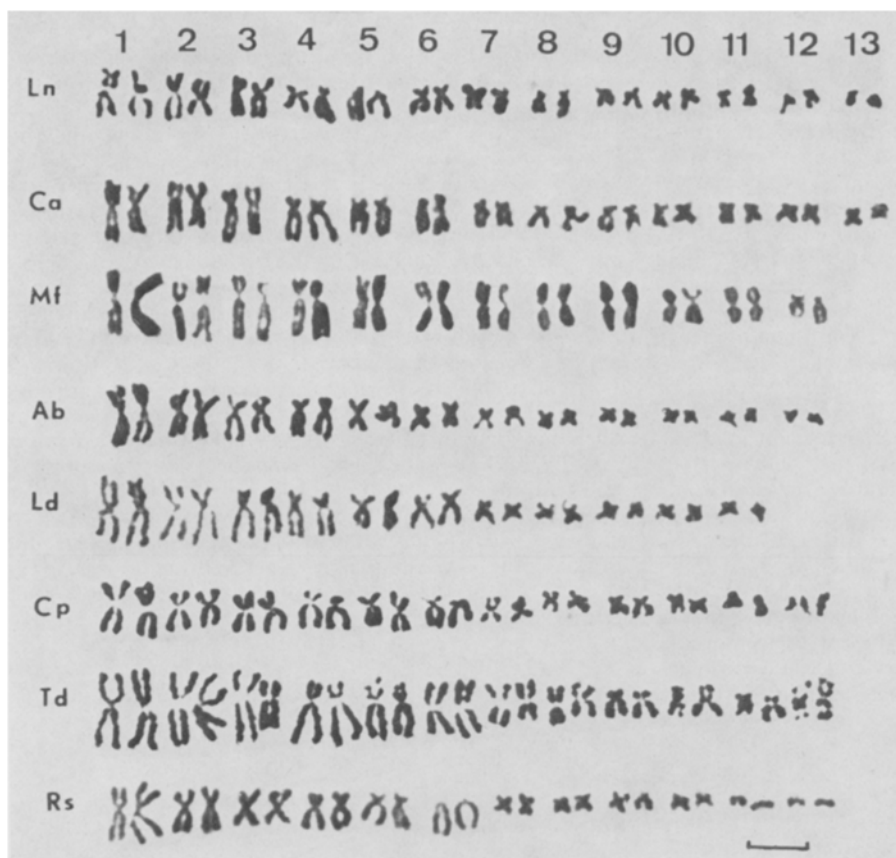 1 2 3 4 5 6 7 8 9 10 11 12 13
Ln
Ca
Mf
Ab
Ld
Cp
Td
Rs